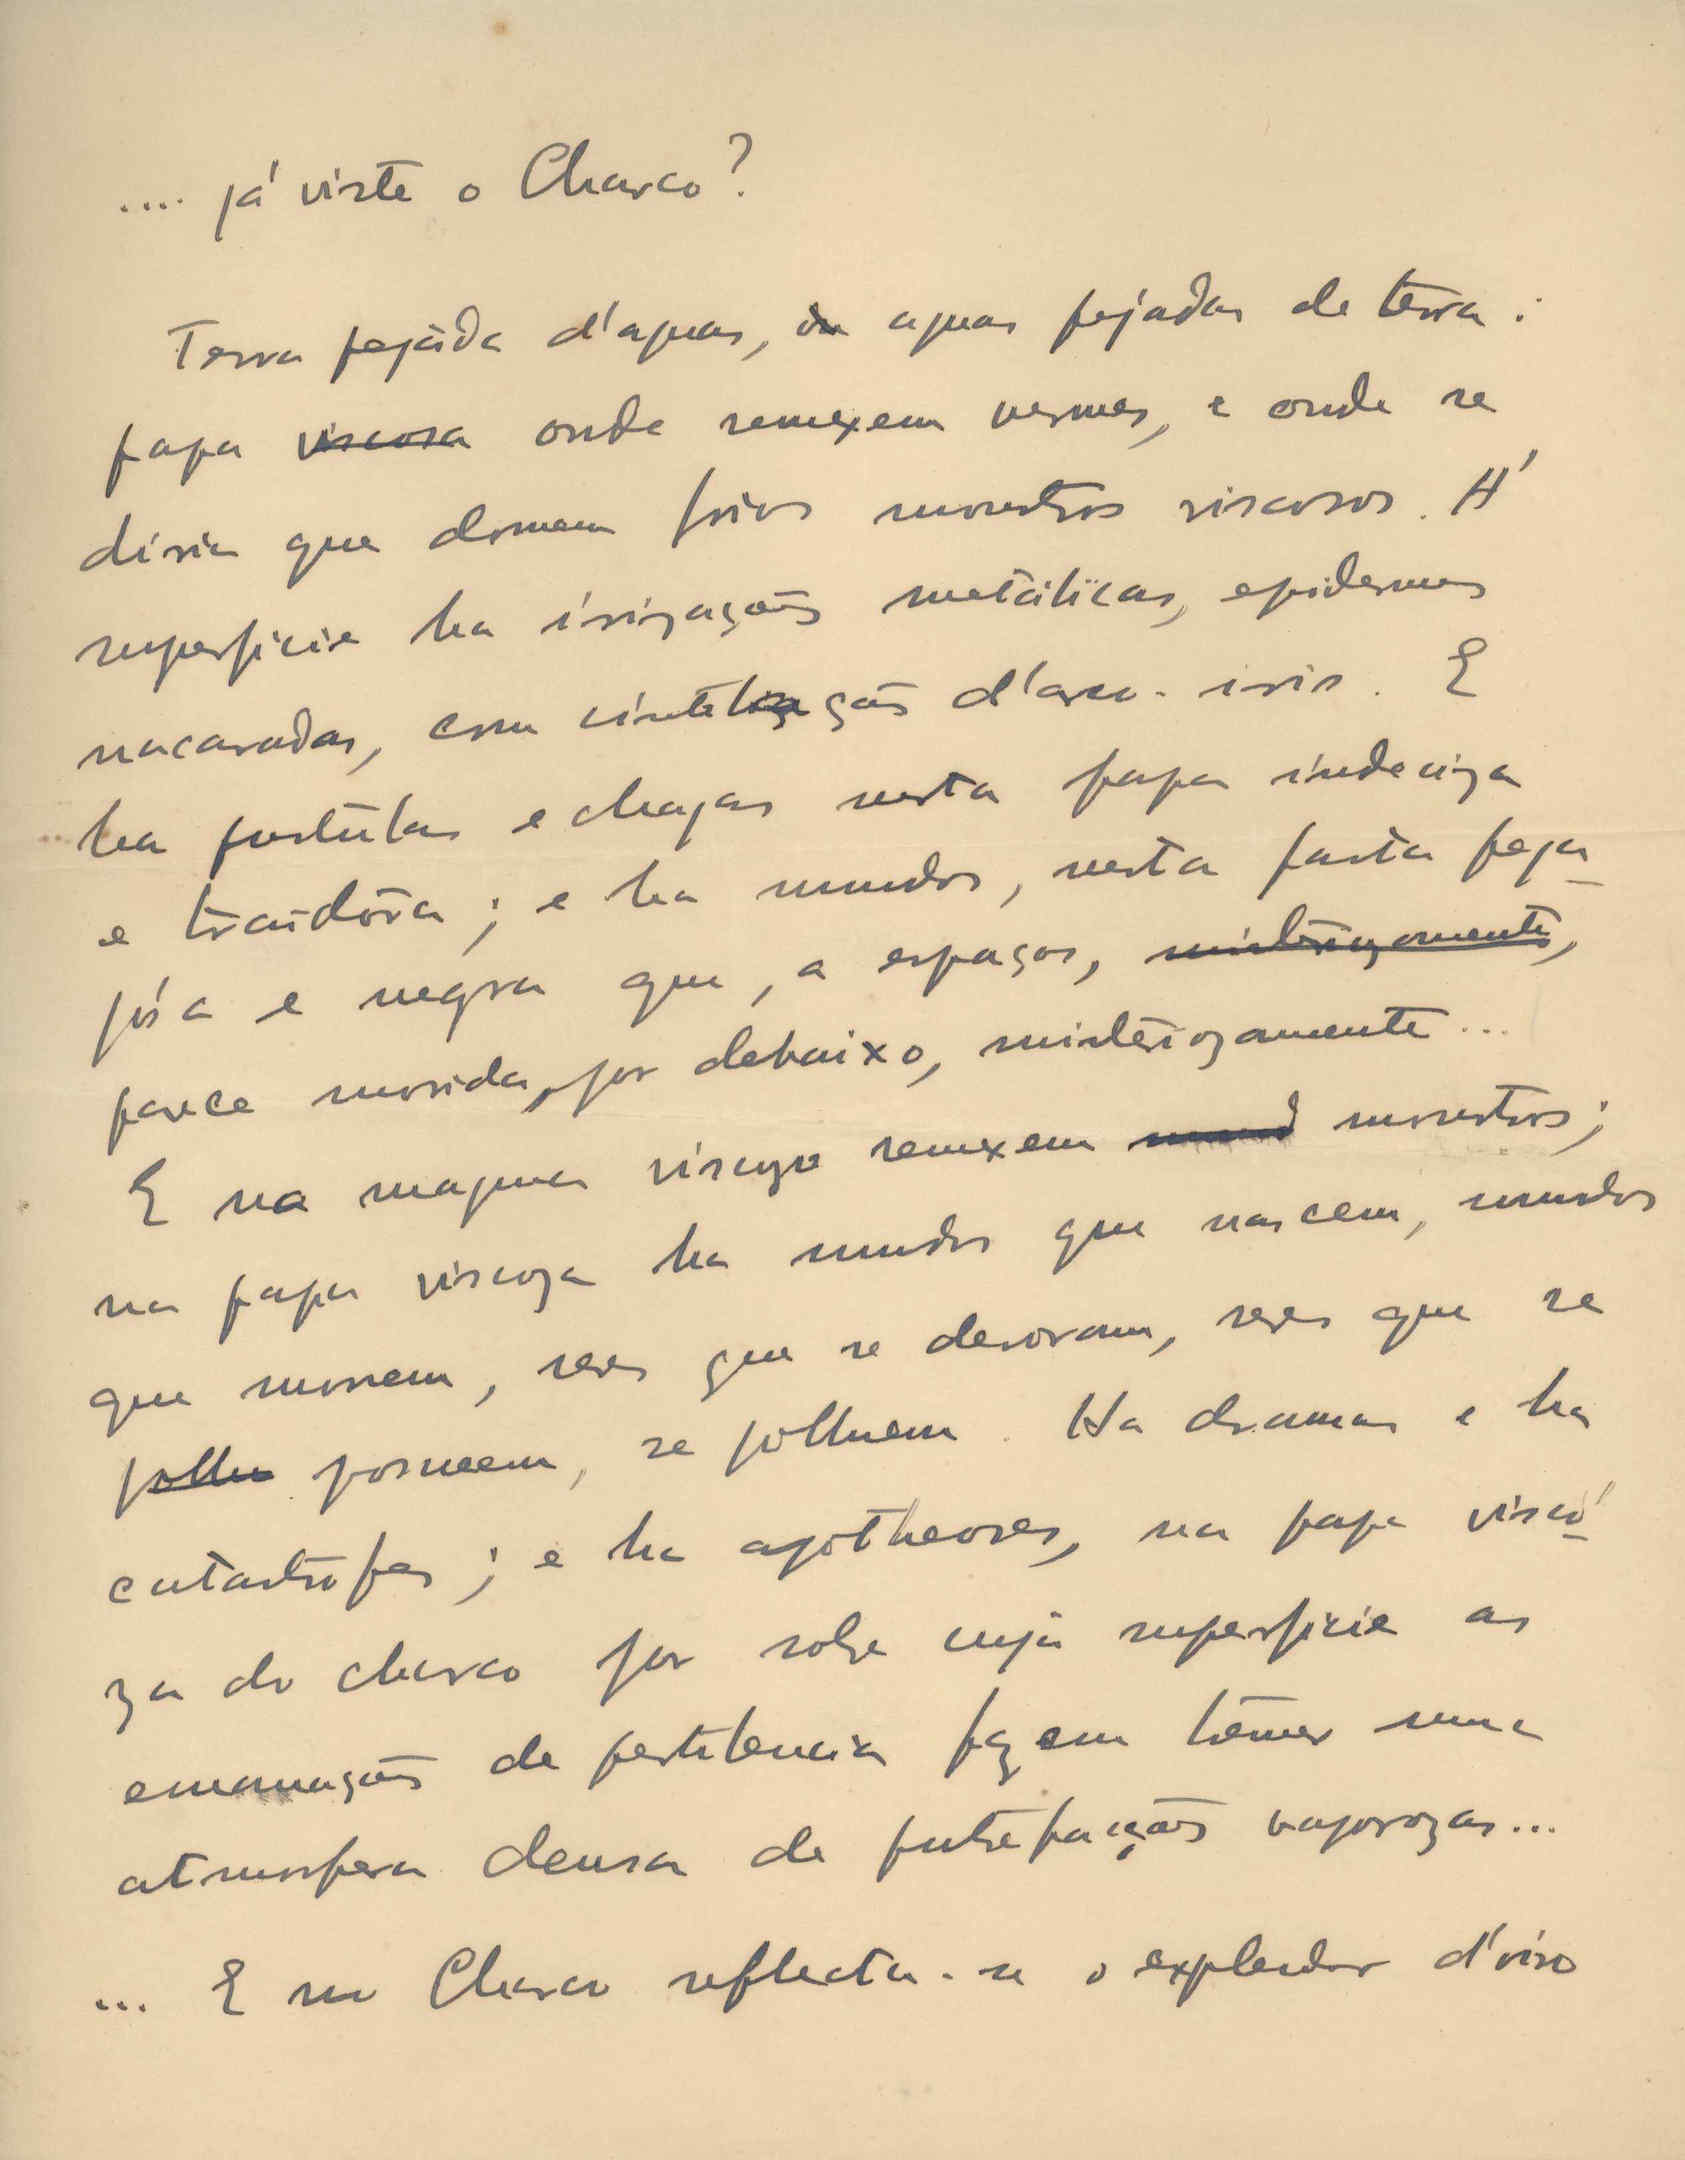 .... já viste o Charco?
Terra pejáda d'aguas, ou aguas pejadas de terra:
papa viscosa onde remexem vermes, e onde se
diria que dormem frios monstros viscosos. H'
superficie ha irizações metálicas, epidermes
nacaradas, com cintilações d'arco-iris. E
ha pustúlas e chagas nesta papa indeciza
e traidôra; e ha mundos, nesta pasta pega-
jósa e negra que, a espaços, misteriozamente,
parece movida, por debaixo, misteriozamente...
E na magma viscoza remexem mund monstros;
na papa viscoza ha mundos que nascem, mundos
que morrem, seres que se devoram, seres que se
pollu possuem, se polluem. Ha dramas e ha
catastrófes; e ha apotheoses, na papa viscó-
za do charco por sobre cuja superficie as
emanações de pestilencia fazem têmer uma
atmosfera densa de putrefacções vaporozas...
... E no Charco reflecta-se o explendor d'oiro